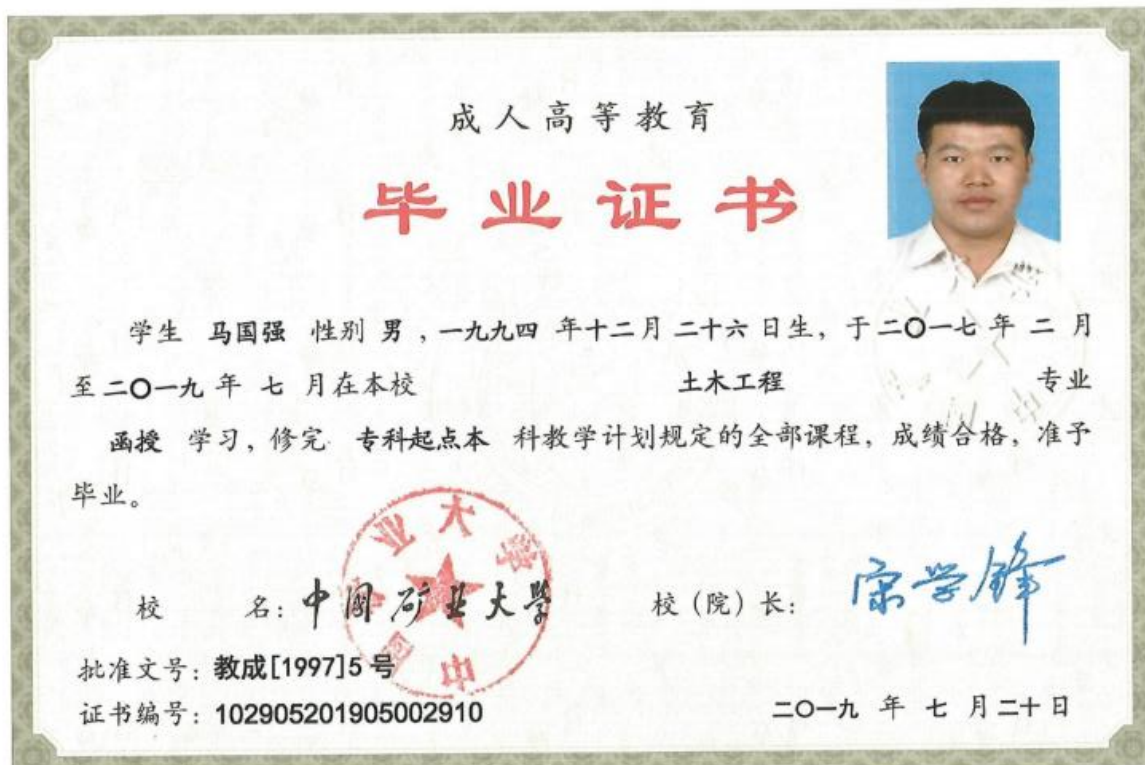 成人高等教育
毕业证书
学生 马国强 性别 男 ，一九九四 年十二月 二十六 日生，于 二〇一七 年 二 月
至 二〇一九 年 七 月在本校 土木工程 专业
函授 学习，修完 专科起点本 科教学计划规定的全部课程，成绩合格，准予
毕业。
校 名：中国矿业大学 校（院）长：
批准文号：教成[1997]5 号
证书编号：102905201905002910
二〇一九 年 七 月二十日